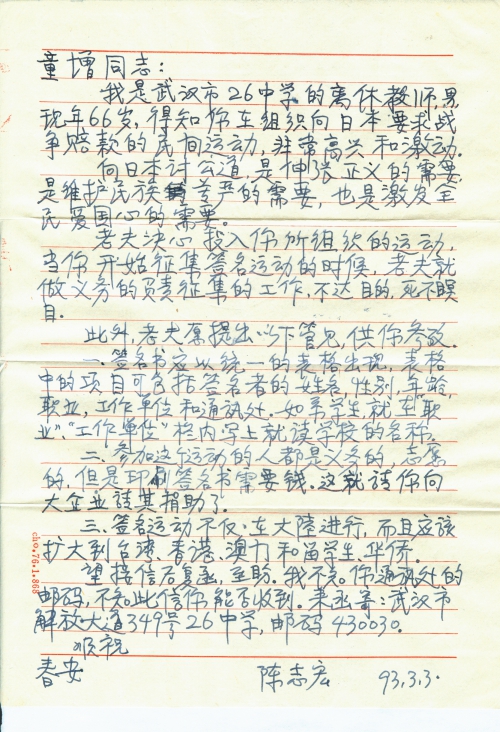 童增同志：
我是武汉市26中学的离休教师，男，
现年66岁，得知你在组织向日本要求战
争赔款的民间运动，非常高兴和激动。
向日本讨公道，是伸张正义的需要，
是维护民族尊严的需要，也是激发全
民爱国心的需要。
老夫决心投入你所组织的运动，
当你开始征集签名运动的时候，老夫就
做义务的负责征集的工作，不达目的，死不瞑
目。
此外，老夫愿提出以下管见，供你参改。
一、签名书应以统一的表格出现，表格
中的项目可包括签名者的姓名，性别，年龄，
职业，工作单位和通讯处。如系学生，就在“职
业”、“工作单位”栏内写上就读学校的名称。
二、参加这个运动的人都是义务的，志愿
的，但是印刷签名书需要钱。这就请你向
大企业請其捐助了。
三、签名运动不仅在大陸进行，而且应该
扩大到台湾、香港、澳门和留学生、华侨。
望接信后复函，至盼。我不知你通讯处的
邮码，不知此信你能否收到。来函寄：武汉市
解放大道349号26中学，邮码430030.
顺祝
春安
陈志宏 93.3.3.
cho.76.1.868